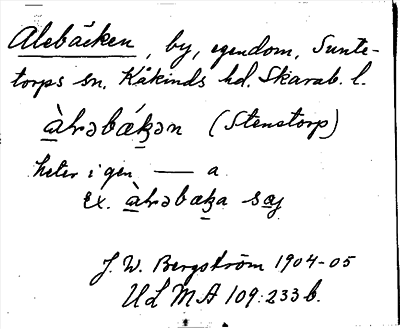 Alebäcken, by, egendom, Sunte-
torps sn, Kåkinds hd, Skarab. l.
(Stenstorp)
heter i gen — a
Ex.
J. W. Bergström 1904-05
ULMA 109:233 b.